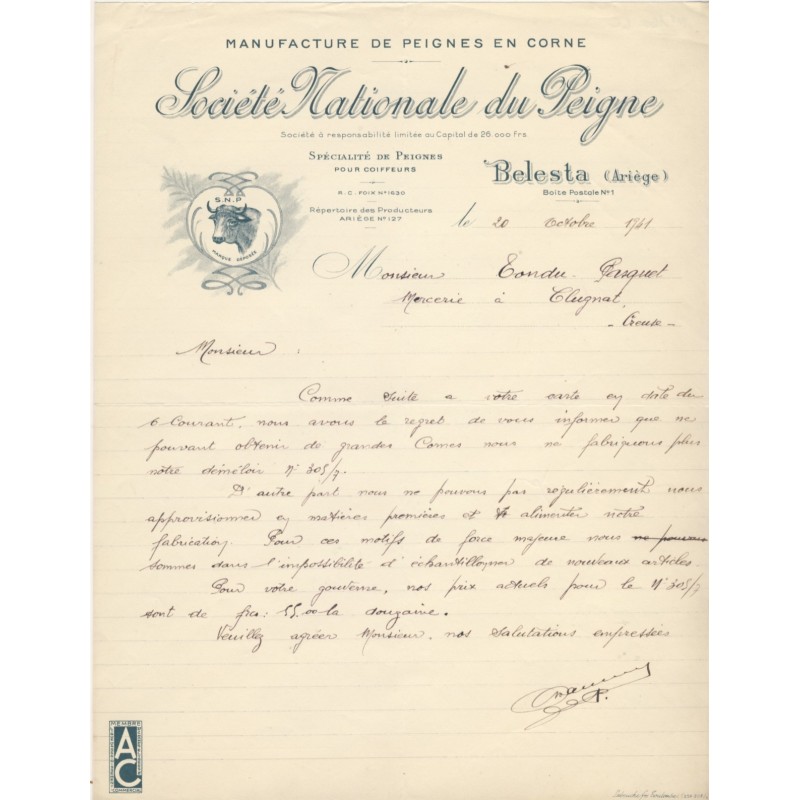 MANUFACTURE DE PEIGNES EN CORNE
Société Nationale du Peigne
Société à responsabilité limitée au Capital de 26.000 frs
SPÉCIALITÉ DE PEIGNES
POUR COIFFEURS
R.C. FOIX N° 1630
Répertoire des Producteurs
ARIÈGE N° 127
S.N.P
MARQUE DEPOSÉE
Belesta (Ariège)
Boîte Postale N° 1
le 20 Octobre 1941
Monsieur Tondu-Pasquet
Mercerie à Clugnat
- Creuse -
Monsieur :
Comme suite a votre carte en date du
6 Courant, nous avons le regret de vous informer que ne
pouvant obtenir de grandes Cornes nous ne fabriquons plus
nôtre démêloir N° 305/7.
D'autre part nous ne pouvons pas regulièrement nous
approvisionner en matières premières et alimenter notre
fabrication. Pour ces motifs de force majeure nous ne pouvons
sommes dans l'impossibilité d'échantillonner de nouveaux articles.
Pour votre gouverne, nos prix actuels pour le N° 305/7
sont de frcs: 55,00 la douzaine.
Veuillez agréer Monsieur, nos Salutations empressées
MEMBRE
AC